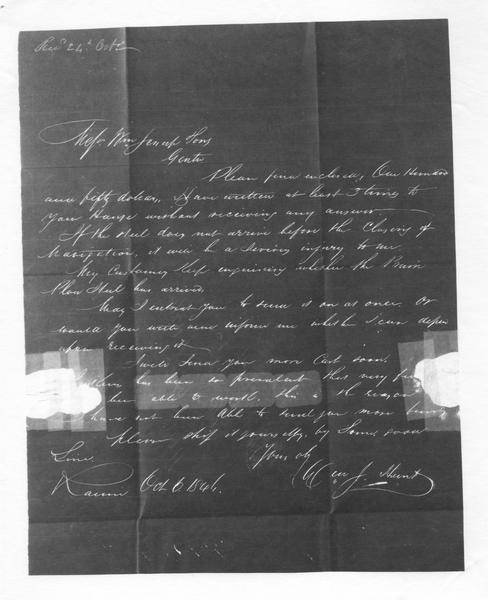 Recd 24th Octr
Messrs Wm Jessup & Sons
Gents
Please find enclosed, One Hundred
and fifty dollars, I have written at least 3 times to
your House without receiving any answer
If the steel does not arrive before the closing of
Navigation, it will be a serious injury to me.
My customers keep enquiring whether the
Plow Steel has arrived.
May I entreat you to send it on at once. Or
would you write and inform me whether I can depend
upon receiving it.
I will send you more Cash soon.
has been so prevalent that very few
been able to work. this is the reason I
have not been able to send you more money
Please ship it yourselfs, by some good
Line
Yours &c
Racine Oct 6. 1846.
J. Hunt